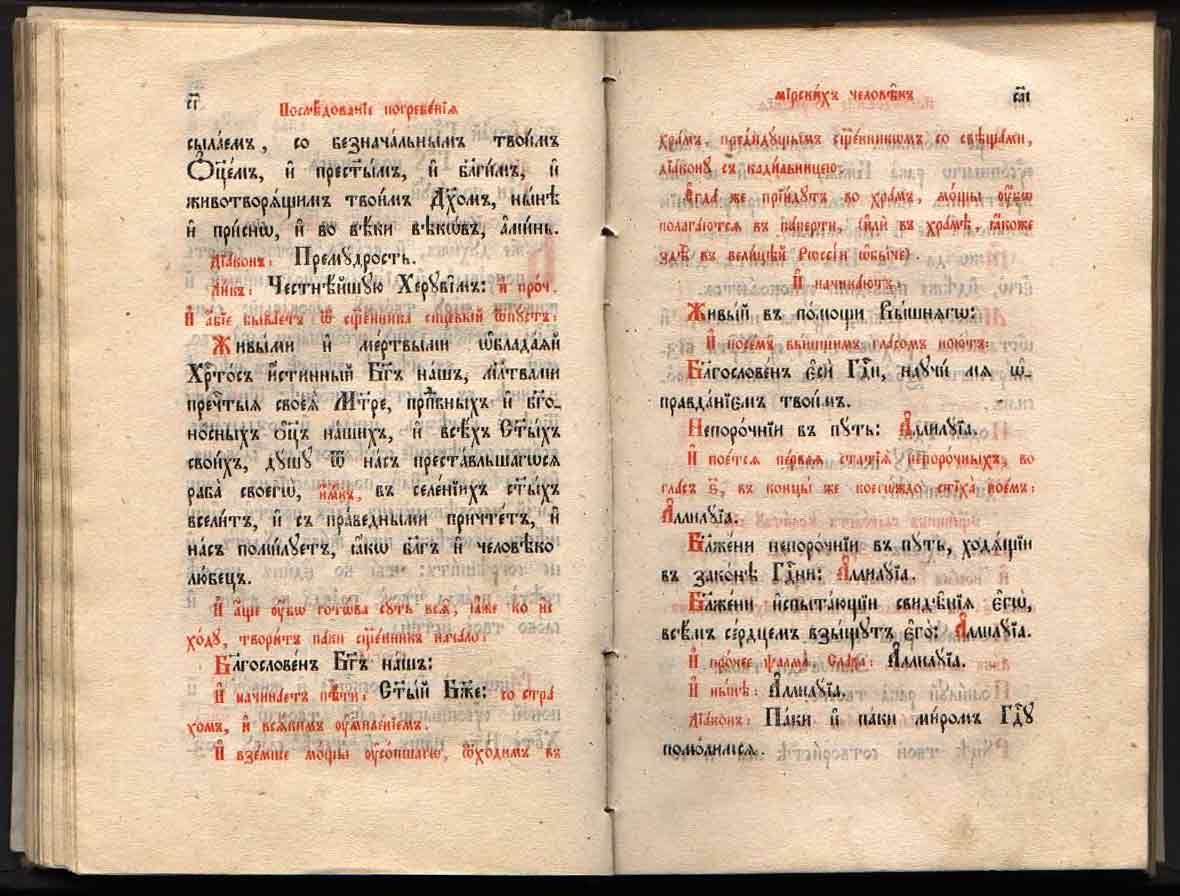 сі҃
Послѣ́дованїе погребе́нїѧ
сыла́емъ, со безнача́льнымъ твои́мъ
Ѻ҆ц҃е́мъ, и҆ прест҃ы́мъ, и҆ бл҃ги́мъ, и҆
животворѧ́щимъ твои́мъ Дх҃омъ, ны́нѣ
и҆ при́снѡ, и҆ во вѣ́ки вѣкѡ́въ, а҆ми́нь.
Дїа́конъ: Прему́дрость.
Ли́къ: Честнѣ́йшꙋю Херꙋві̑мъ: и҆ про́ч.
И҆ а҆́бїе быва́етъ ѿ сщ҃е́нника сицевы́й ѿпꙋ́стъ:
Живы́ми и҆ ме́ртвыми ѡ҆блада́ѧй
Хрⷭ҇то́съ и҆́стинный Бг҃ъ на́шъ, мл҃твами
пречⷭ҇тыѧ своеѧ̀ Мт҃ре, прпⷣбныхъ и҆ бг҃о-
но́сныхъ ѻ҆ц҃ъ на́шихъ, и҆ всѣ́хъ Ст҃ы́хъ
свои́хъ, дꙋ́шꙋ ѿ на́съ преста́вльшагѡсѧ
раба̀ своегѡ̀, и҆́мкъ, въ селе́нїихъ ст҃ы́хъ
всели́тъ, и҆ съ пра́ведными причте́тъ, и҆
на́съ поми́лꙋетъ, ꙗ҆́кѡ бл҃гъ и҆ человѣко
лю́бецъ.
И҆ а҆́ще ᲂу҆́бѡ готѡ́ва сꙋ́ть всѧ̑, ꙗ҆̀же ко и҆с
хо́дꙋ, твори́тъ па́ки сщ҃е́нникъ нача́ло:
Бл҃гослове́нъ Бг҃ъ на́шъ:
И҆ начина́етъ пѣ́ти: Ст҃ы́й Бж҃е: со стра́
хомъ, и҆ всѧ́кимъ ᲂу҆миле́нїемъ.
И҆ взе́мше мо́щы ᲂу҆со́пшагѡ, ѿхо́димъ въ
мїрски́хъ человѣ́къ
саі҃
хра́мъ, предъидꙋ́щымъ сщ҃е́нникѡмъ со свѣща́ми,
дїа́конꙋ съ кади́льницею.
Е҆гда́ же прїи́дꙋтъ во хра́мъ, мо́щы ᲂу҆́бѡ
полага́ютсѧ въ па́перти, (и҆лѝ въ хра́мѣ, ꙗ҆́коже
здѣ̀ въ вели́цѣй Рѡссі́и ѡ҆бы́че).
И҆ начина́ютъ,
Живы́й въ по́мощи Вы́шнѧгѡ:
И҆ посе́мъ вы́шшимъ гла́сомъ пою́тъ:
Бл҃гослове́нъ є҆сѝ Гдⷭ҇и, наꙋчи́ мѧ ѡ҆-
правда́нїємъ твои́мъ.
Непоро́чнїи въ пꙋ́ть: А҆ллилꙋ́їа.
И҆ пое́тсѧ пе́рваѧ статїѧ̀ непоро́чныхъ, во
гла́съ ѕ҃, въ концы́ же коегѡ́ждо стіха̀ пое́мъ:
А҆ллилꙋ́їа.
Бл҃же́ни непоро́чнїи въ пꙋ́ть, ходѧ́щїи
въ зако́нѣ Гдⷭ҇ни: А҆ллилꙋ́їа.
Бл҃же́ни и҆спыта́ющїи свидѣ̑нїѧ є҆гѡ̀,
всѣ́мъ се́рдцемъ взы́щꙋтъ є҆го̀: А҆ллилꙋ́їа.
И҆ про́чее ѱалма̀. Сла́ва: А҆ллилꙋ́їа.
И҆ ны́нѣ: А҆ллилꙋ́їа.
Дїа́конъ: Па́ки и҆ па́ки ми́ромъ Гдⷭ҇ꙋ
помо́лимсѧ.